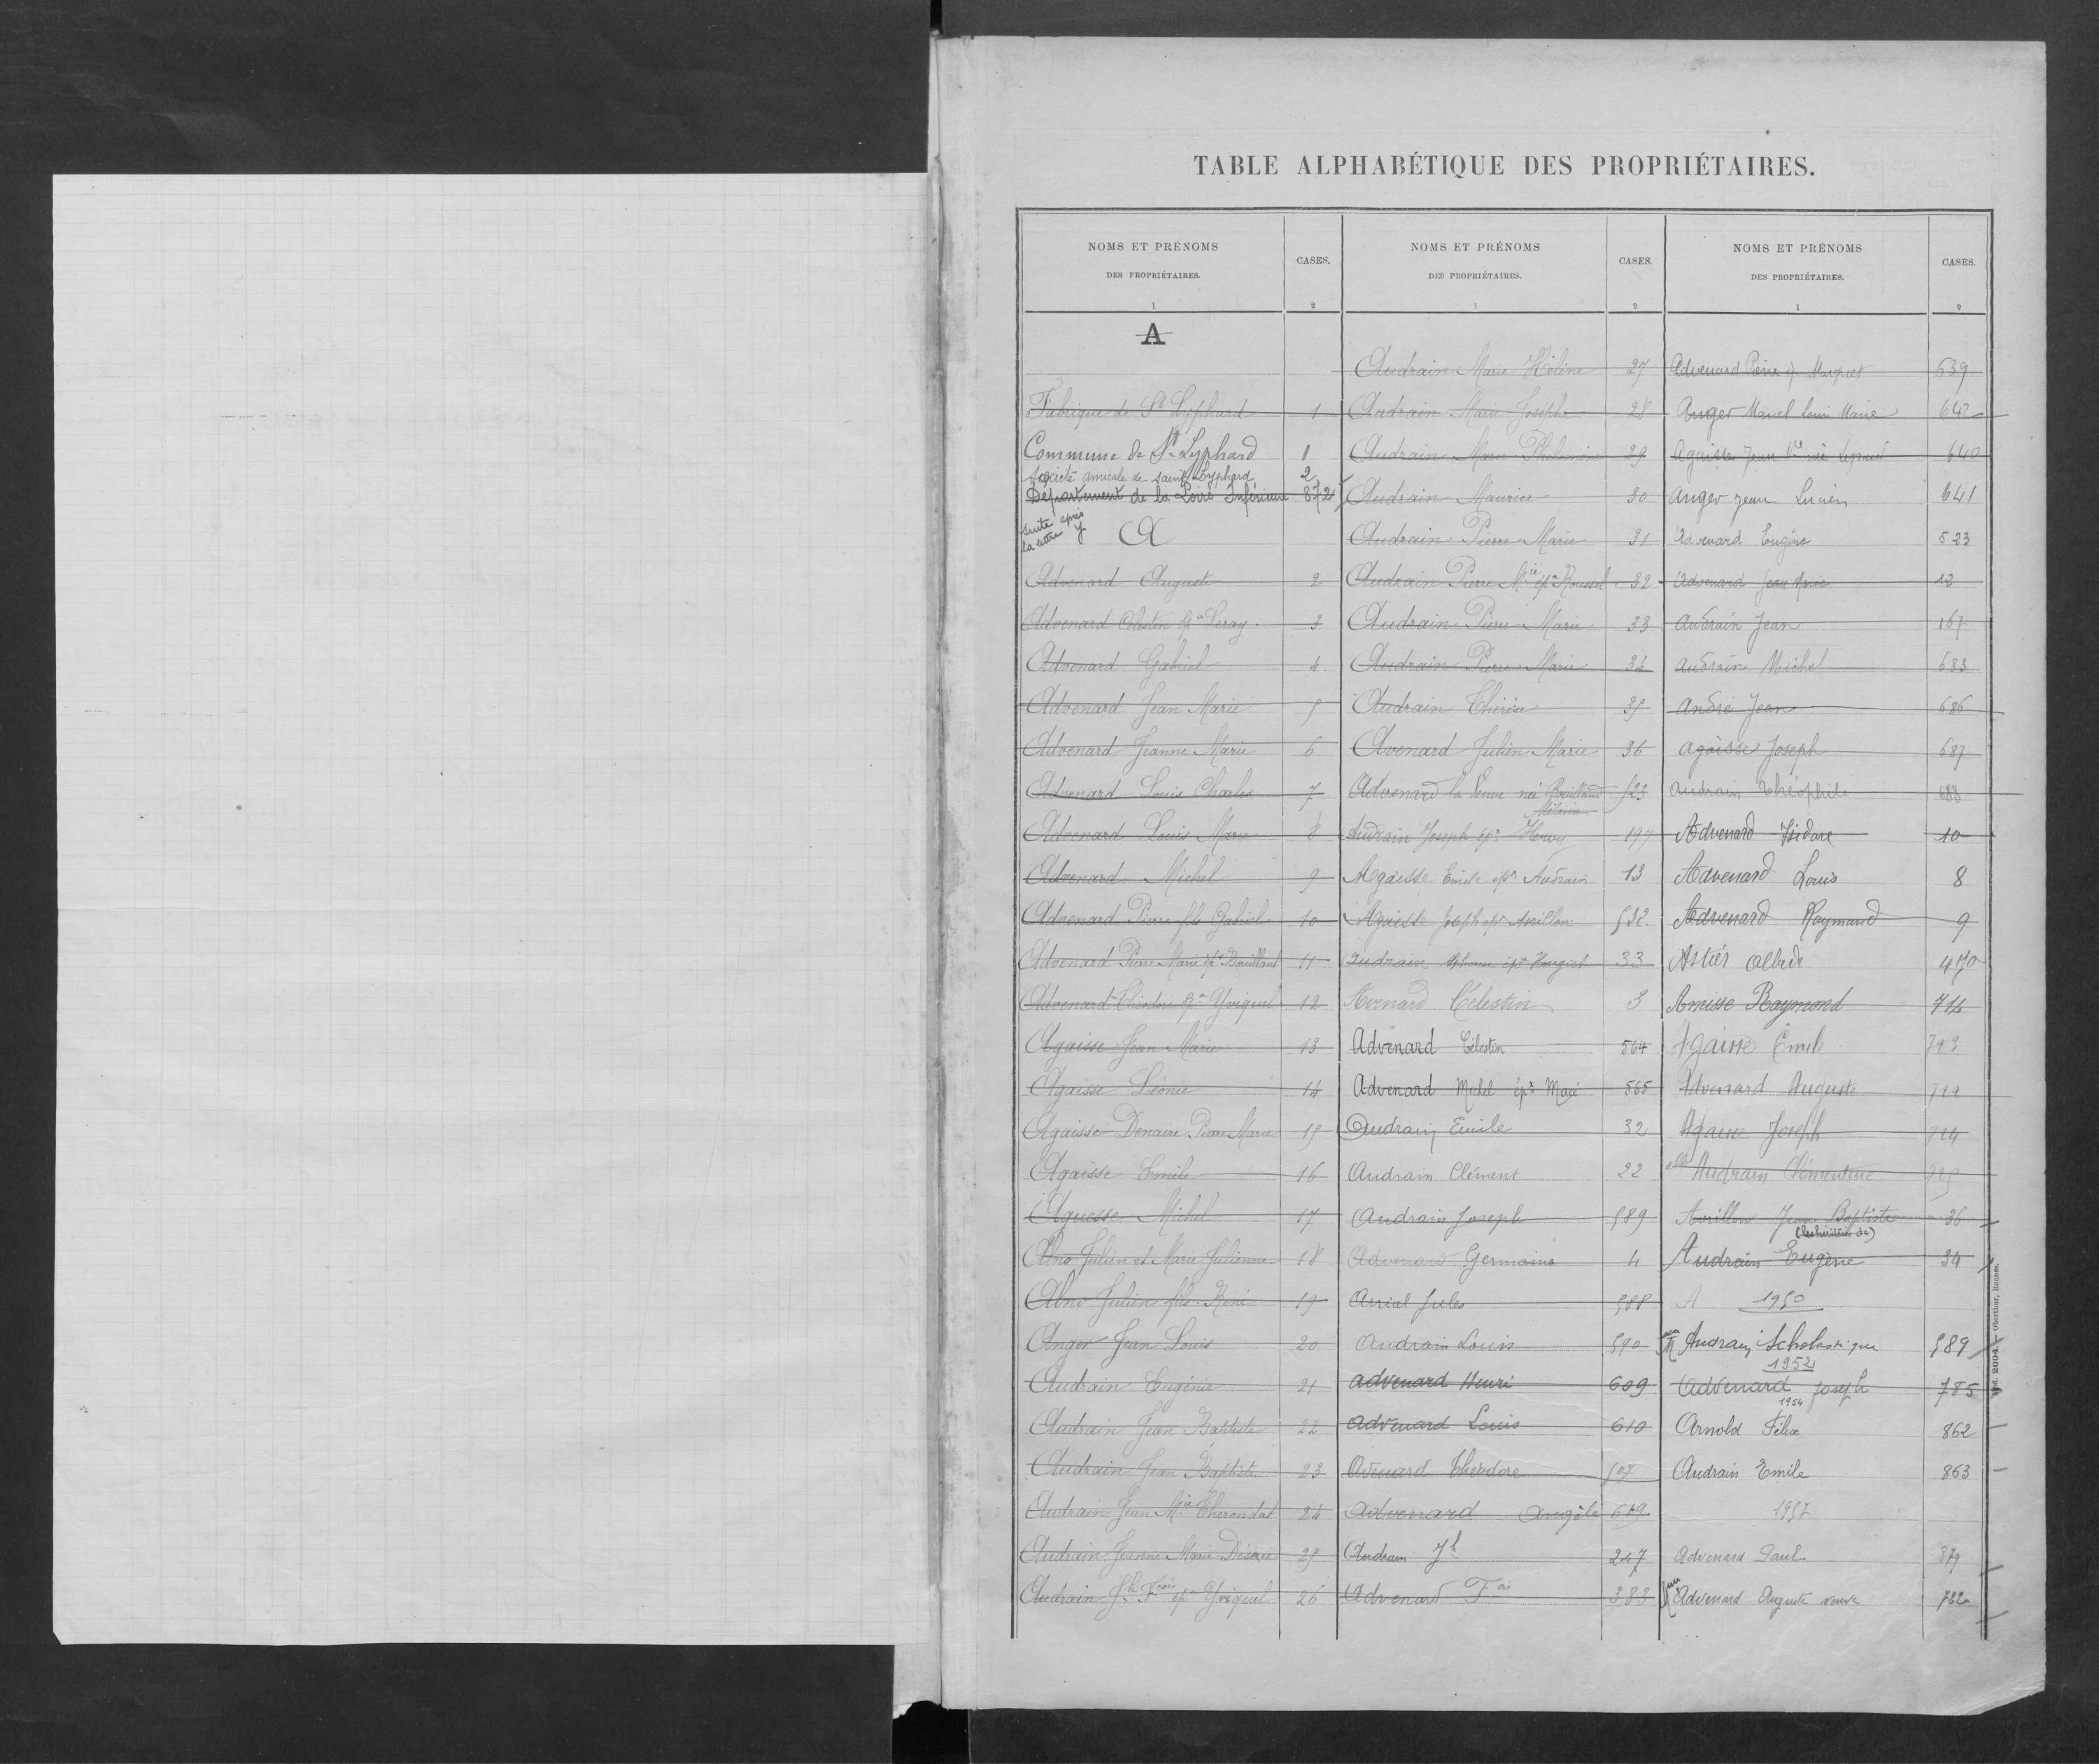 TABLE ALPHABÉTIQUE DES PROPRIÉTAIRES.
NOMS ET PRÉNOMS
DES PROPRIÉTAIRES.
CASES.
1
2
A
Fabrique de St Lyphard 1
Commune de St Lyphard 1
Société amicale de saint Lyphard 2
Département de la Loire Inférieure 872
suite après
la lettre y
A
Advenard Auguste 2
Advenard Célestin ép. Leray 3
Advenard Gabriel 4
Advenard Jean Marie 5
Advenard Jeanne Marie 6
Advenard Louis Charles 7
Advenard Louis Marie 8
Advenard Michel 9
Advenard Pierre fils Gabriel 10
Advenard Pierre Marie épx Bouillant 11
Advenard Théodore épx Yviquel 12
Agaisse Jean Marie 13
Agaisse Léonie 14
Agaisse Denaire Pierre Marie 15
Agaisse Emile 16
Aguesse Michel 17
Alno Julien et Marie Julienne 18
Alno Julien fils René 19
Anger Jean Louis 20
Audrain Eugénie 21
Audrain Jean Baptiste 22
Audrain Jean Baptiste 23
Audrain Jean Mie Therondat 24
Audrain Jeanne Marie Désirée 25
Audrain Jh Fcois épx Yviquel 26
NOMS ET PRÉNOMS
DES PROPRIÉTAIRES.
CASES.
1
2
Audrain Marie Hélène 27
Audrain Marie Josèphe 28
Audrain Marie Philomène 29
Audrain Maurice 30
Audrain Pierre Marie 31
Audrain Pierre Mie épx Roussel 32
Audrain Pierre Marie 33
Audrain Pierre Marie 34
Audrain Thérèse 35
Avenard Julien Marie 36
Advenard la Veuve née Bouilland 523
Audrain Joseph épx Hervy 197
Agaisse Emile épx Audrain 13
Agaisse Joseph épx Avrillon 532
Audrain épx 33
Avenard Célestin 3
Advenard Célestin 564
Advenard Michel épx Macé 565
Audrain Emile 32
Audrain Clément 22
Audrain Joseph 589
Advenard Germaine 4
Arrial Jules 588
Audrain Louis 590
Advenard Henri 609
Advenard Louis 610
Avenard Théodore 507
Advenard Angèle 619
Audrain Jh 247
Advenard Fois 383
NOMS ET PRÉNOMS
DES PROPRIÉTAIRES.
CASES.
1
2
Advenard Pierre 639
Anger Marcel Louis Marie 642
Agaisse Jean Vve née 640
Anger Jean Lucien 641
Advenard Eugène 523
Advenard Jean Marie 12
Audrain Jean 167
Audrain Michel 683
André Jean 686
Agaisse Joseph 687
Audrain Théophile 688
Advenard Isidore 10
Advenard Louis 8
Advenard Raymond 9
Astier Albert 470
Amisse Raymond 714
Agaisse Emile 793
Advenard Auguste 722
Agaisse Joseph 724
Audrain Clémentine 725
Avrillon Jean Baptiste 36
(les héritiers de)
Audrain Eugène 34
A 1950
Audrain Scholastique 589
1952
Advenard Joseph 785
1954
Arnold Félix 862
Audrain Emile 863
1957
Advenard Paul 879
Advenard Auguste veuve 762
Mod. 2004. — Oberthur, Rennes.